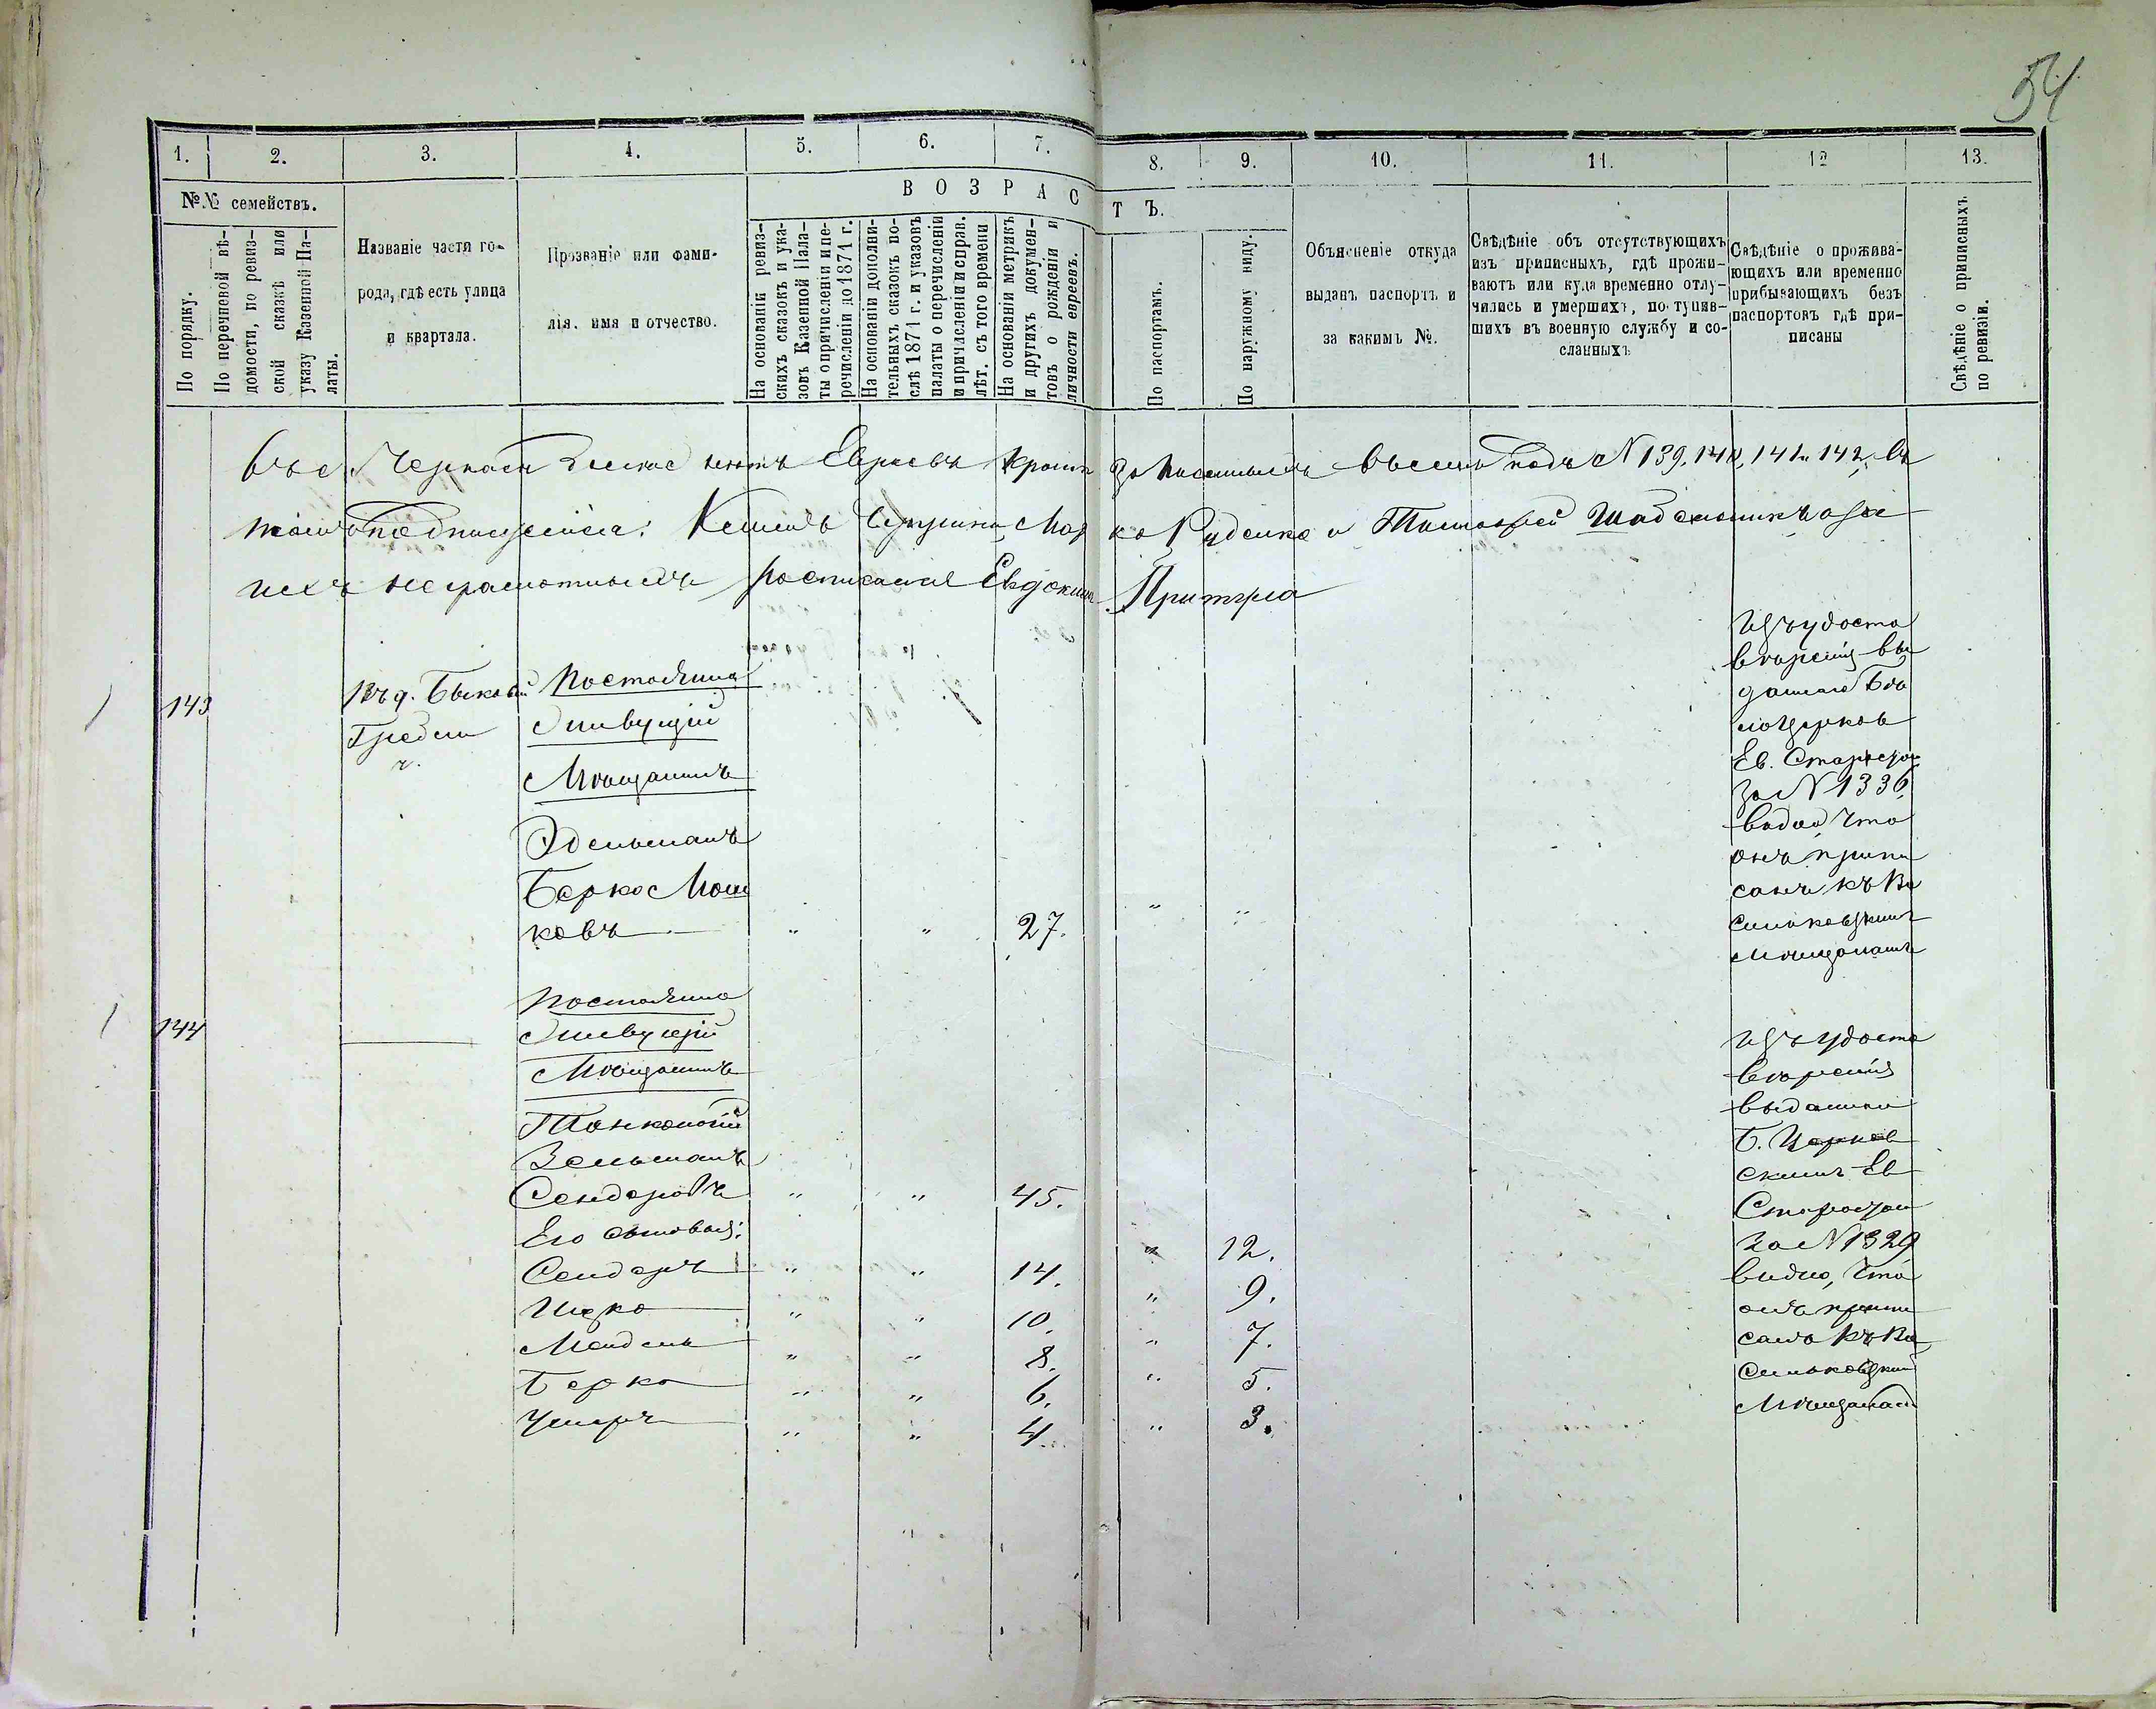 54
1. 2. 3. 4. 5. 6. 7. 8. 9. 10. 11. 12 13.
№№ семействъ.
По порядку.
По перечневой вѣ-
домости, по ревиз-
ской сказкѣ или
указу Казенной Па-
латы.
Названіе части го-
рода, гдѣ есть улица
и квартала.
Прозваніе или фами-
лія, имя и отчество.
ВОЗРАСТЪ.
На основаніи ревиз-
скихъ сказокъ и ука-
зовъ Казенной Пала-
ты о причисленіи и пе-
речисленіи до 1871 г.
На основаніи дополни-
тельныхъ сказокъ по-
слѣ 1871 г. и указовъ
палаты о перечисленіи
и причисленіи и справ.
лѣт. съ того времени
На основаніи метрикъ
и другихъ докумен-
товъ о рожденіи и
личности евреевъ.
По паспортамъ.
По наружному виду.
Объясненіе откуда
выданъ паспортъ и
за какимъ №.
Свѣдѣніе объ отсутствующихъ
изъ приписныхъ, гдѣ прожи-
ваютъ или куда временно отлу-
чились и умершихъ, поступив-
шихъ въ военную службу и со-
сланныхъ
Свѣдѣніе о прожива-
ющихъ или временно
прибывающихъ безъ
паспортовъ гдѣ при-
писаны
Свѣдѣніе о приписныхъ
по ревизіи.
Въ с. Черкасъ нетъ Евреевъ кромѣ записанныхъ въ подъ № 139, 140, 141 и 142, въ
томъ подписуемся: Руденко и Тимофей а за
ихъ неграмотныхъ росписался Евдокимъ Притула
143
Въ д. Быковой
Гребли
Постоянно
живущій
Мѣщанинъ
Эдельманъ
Берко Мош
ковъ " " 27. " "
Изъ удосто
вѣренія вы
даннаго Бѣ
лоцерков
Ев. Старостою
за № 1336
видно что
онъ припи
санъ къ Ва
сильковскимъ
мѣщанамъ
144
Постоянно
живущій
Мѣщанинъ
Зельманъ
Сендеровъ " " 45.
Его сыновья:
Сендеръ " " 14. " 12.
Ицко " " 10. " 9.
Мендель " " 8. " 7.
Берко " " 6. " 5.
Ушеръ " " 4. " 3.
Изъ удосто
вѣренія
выданнаго
Б. Церков
скимъ Ев
Старостою
за № 1329
видно, что
онъ припи
санъ къ Ва
сильковским
Мѣщанамъ